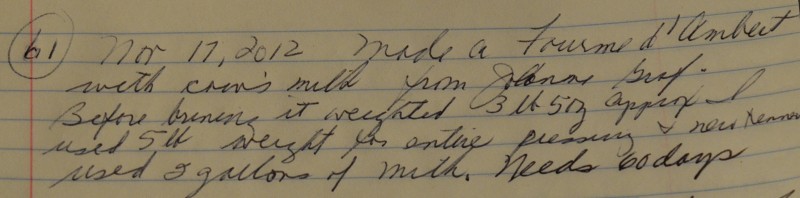 61 Nov 17, 2012 Made a Fourme d'Ambert
with cow's milk from Johanna Graf.
Before brining it weighted 3 lb 5oz approx I
used 5 lb weight for entire pressing & new
used 2 gallons of milk. Needs 60 days